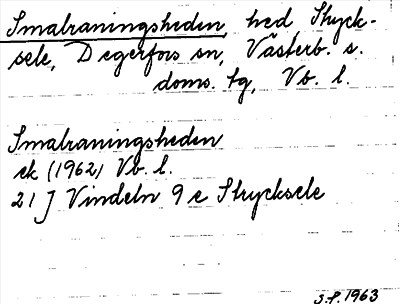 Smalraningsheden, hed Stryck-
sele, Degerfors sn, Västerb. s.
doms. tg, Vb. l.
Smalraningsheden
ek (1962) Vb. l.
21 J Vindeln 9 e Strycksele
S.P. 1963